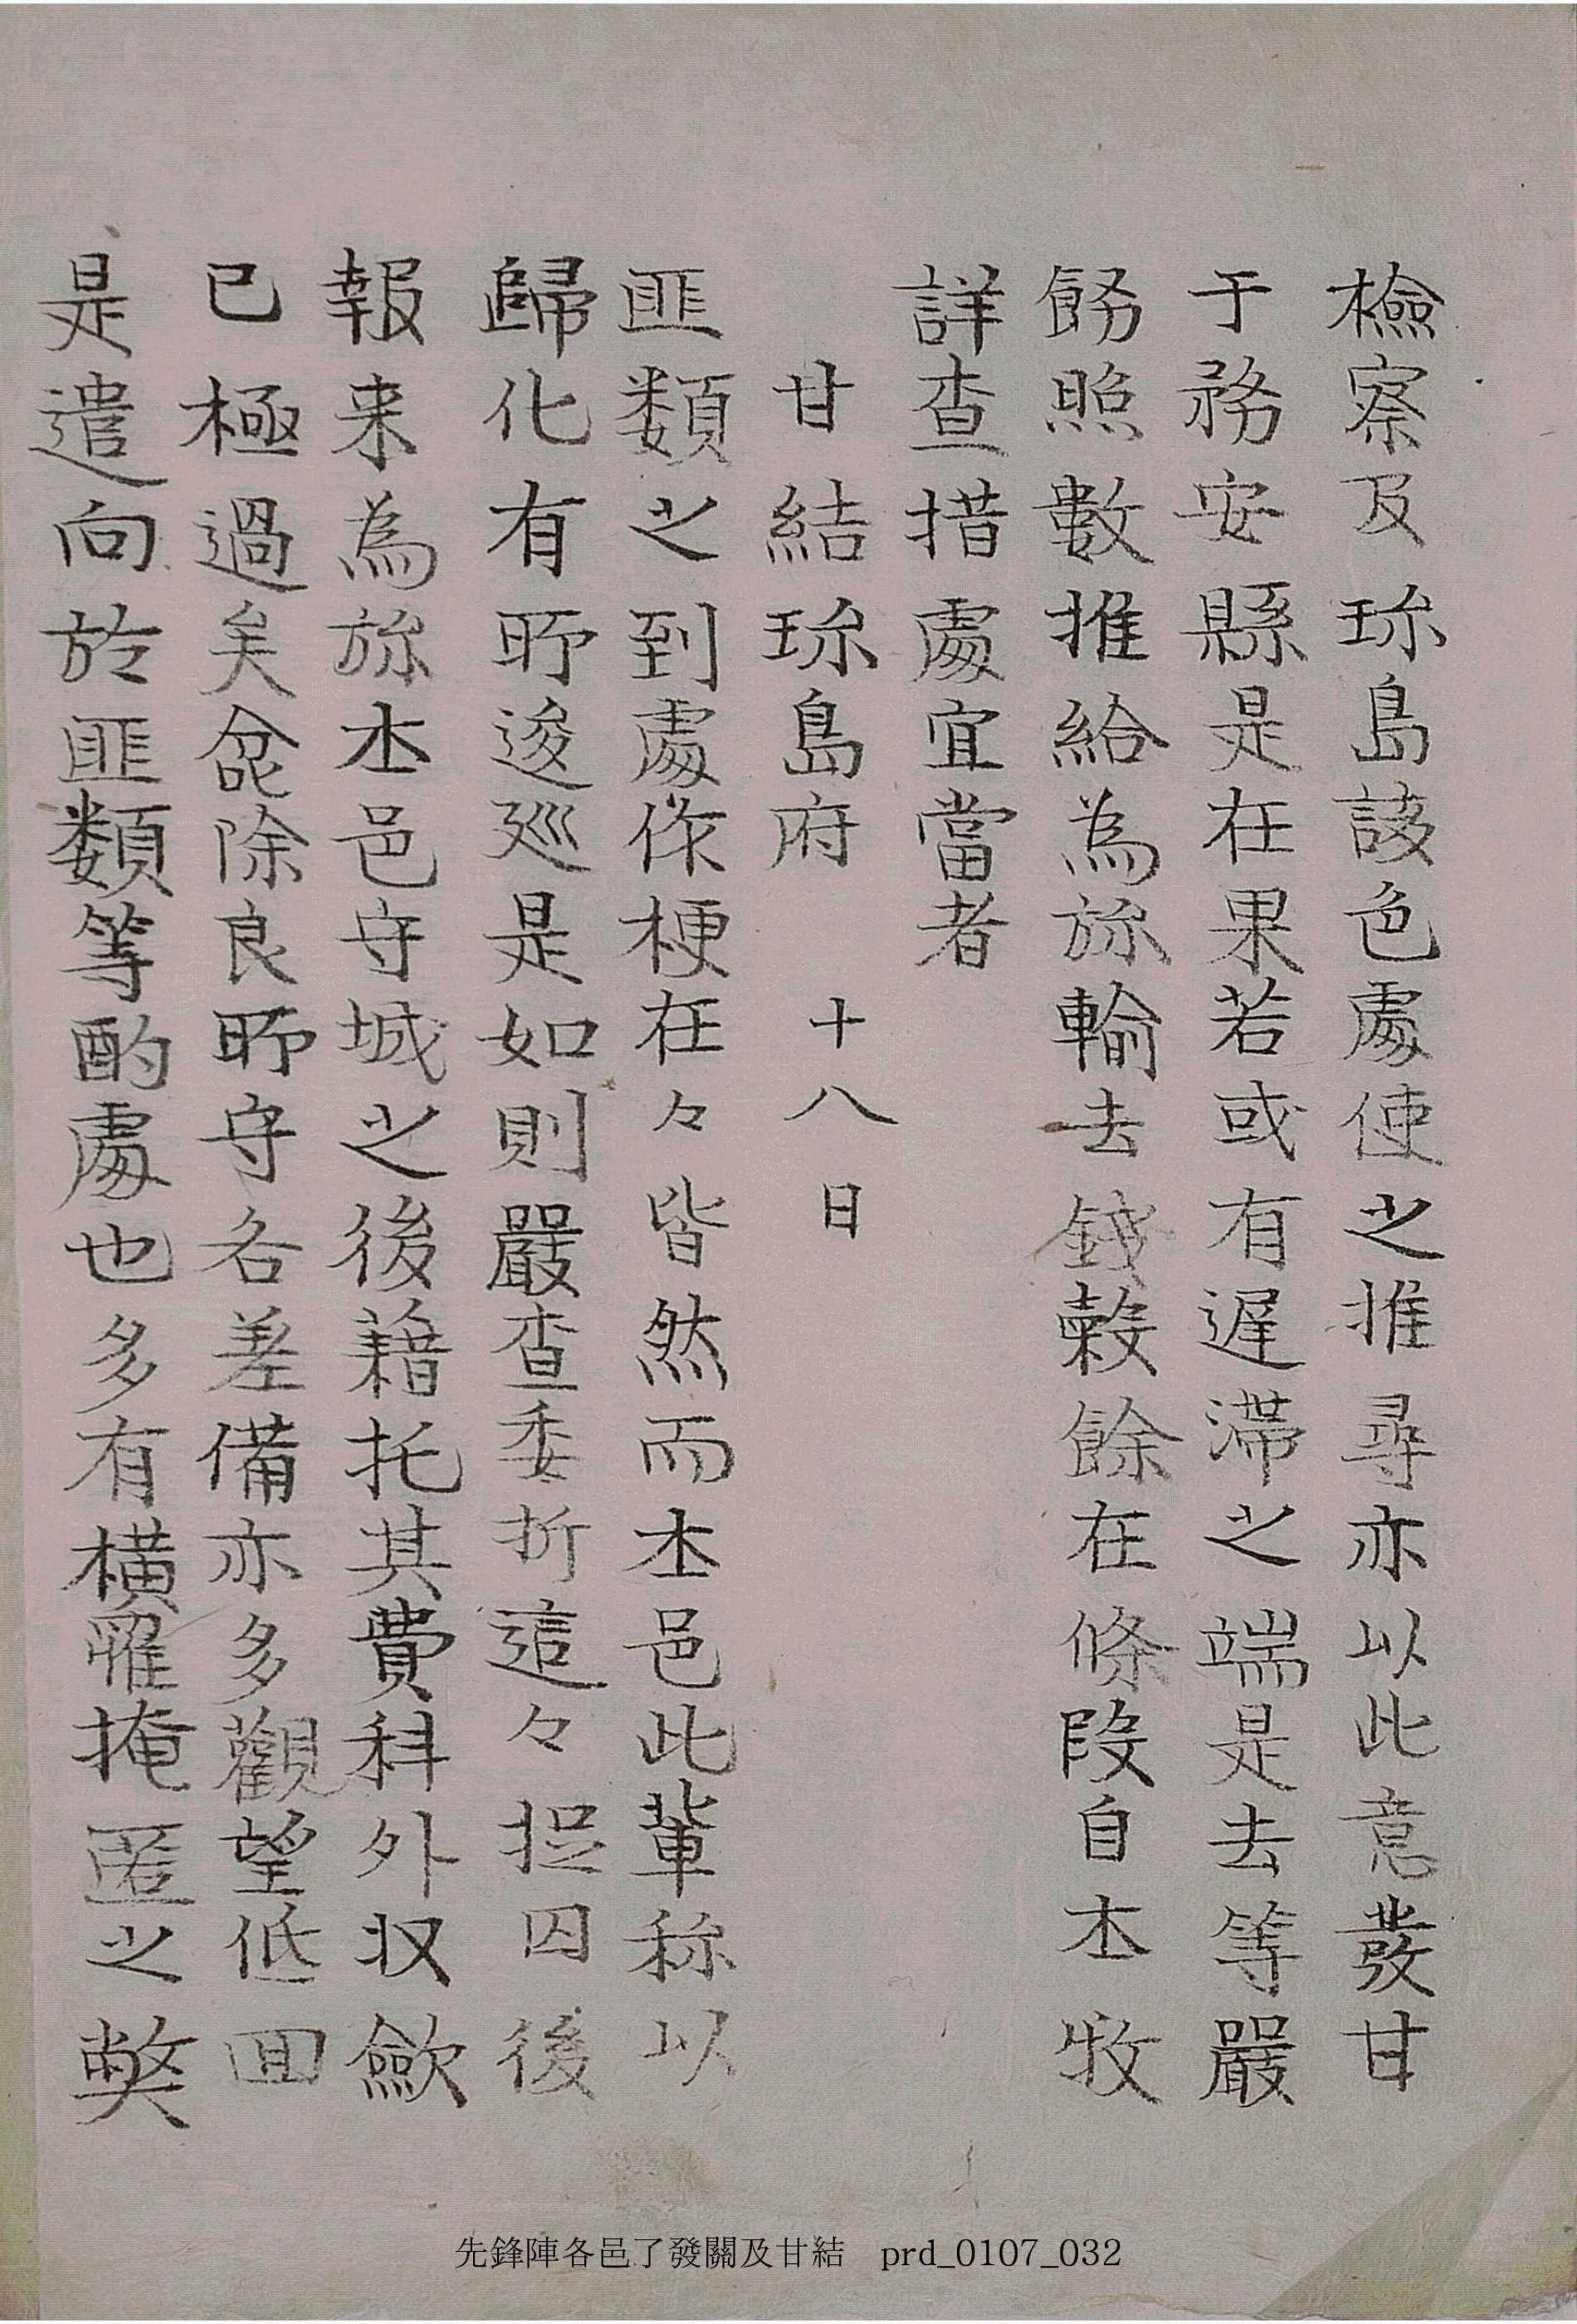 檢察及珎島該色處使之推尋亦以此意發甘
于務安縣是在果若或有遲滯之端是去等嚴
飭照數推給為旀輸去錢糓餘在條段自本牧
詳查措處宜當者
甘結珎島府 十八日
匪類之到處作梗在々皆然而本邑此輩称以
歸化有所逡廵是如則嚴查委折這々捉囚後
報来為旀本邑守城之後藉托其費科外収斂
已極過矣僉除良所守各差備亦多觀望低回
是遣向於匪類等酌處也多有橫罹掩匿之獘
先鋒陣各邑了發關及甘結 prd_0107_032